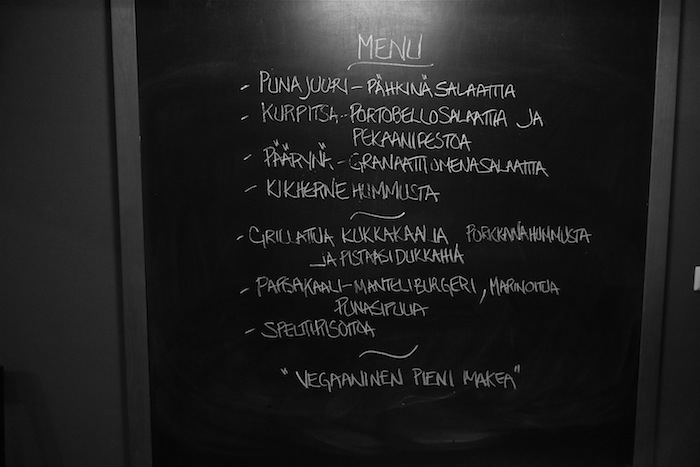 MENU
- PUNAJUURI - PÄHKINÄSALAATTIA
- KURPITSA - PORTOBELLOSALAATTIA JA
PEKAANIPESTOA
- PÄÄRYNÄ - GRANAATTIOMENASALAATTIA
- KIKHERNEHUMMUSTA
- GRILLATTUA KUKKAKAALIA PORKKANAHUMMUSTA
JA PISTAASIDUKKAHIA
- PARSAKAALI - MANTELIBURGERI, MARINOITUA
PUNASIPULIA
- SPELTTIPISOTTOA
"VEGAANINEN PIENI MAKEA"